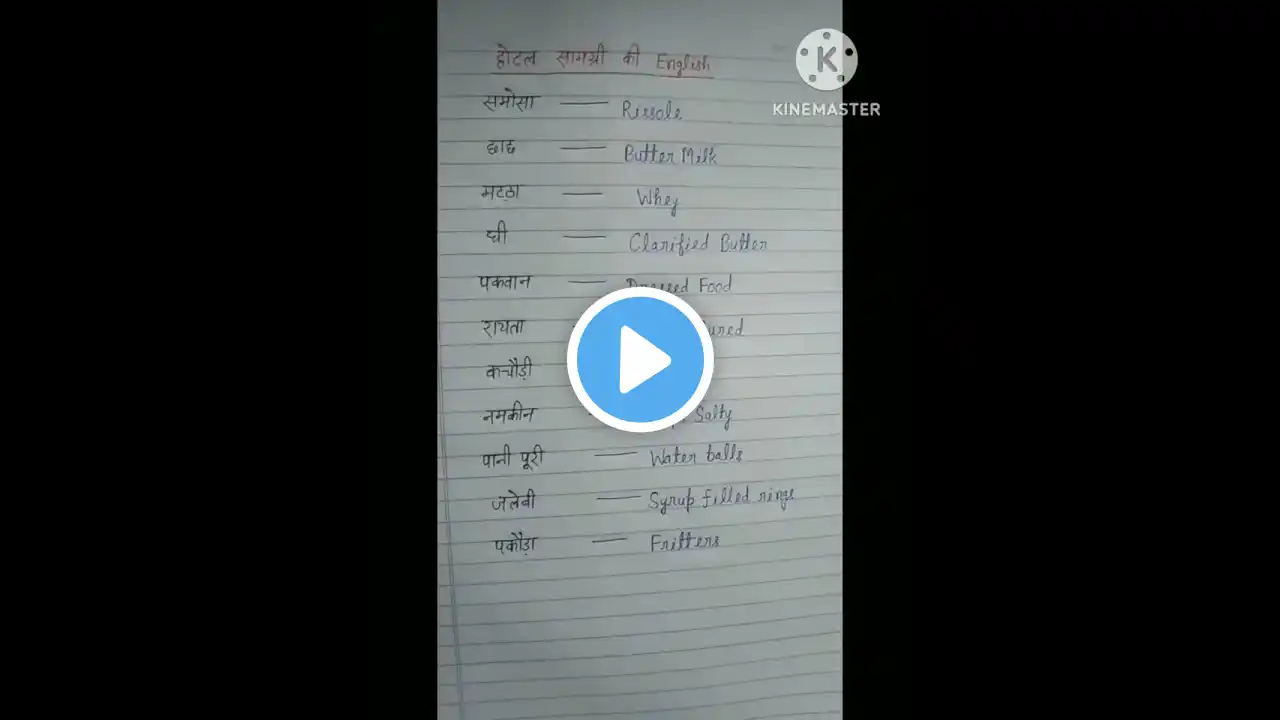 होटल सामग्री की English
समोसा — Rissole
छाछ — Butter Milk
मट्ठा — Whey
घी — Clarified Butter
पकवान — Dressed Food
रायता
कचौड़ी
नमकीन — Salty
पानी पूरी — Water balls
जलेबी — Syrup filled rings
पकौड़ा — Fritters
KINEMASTER